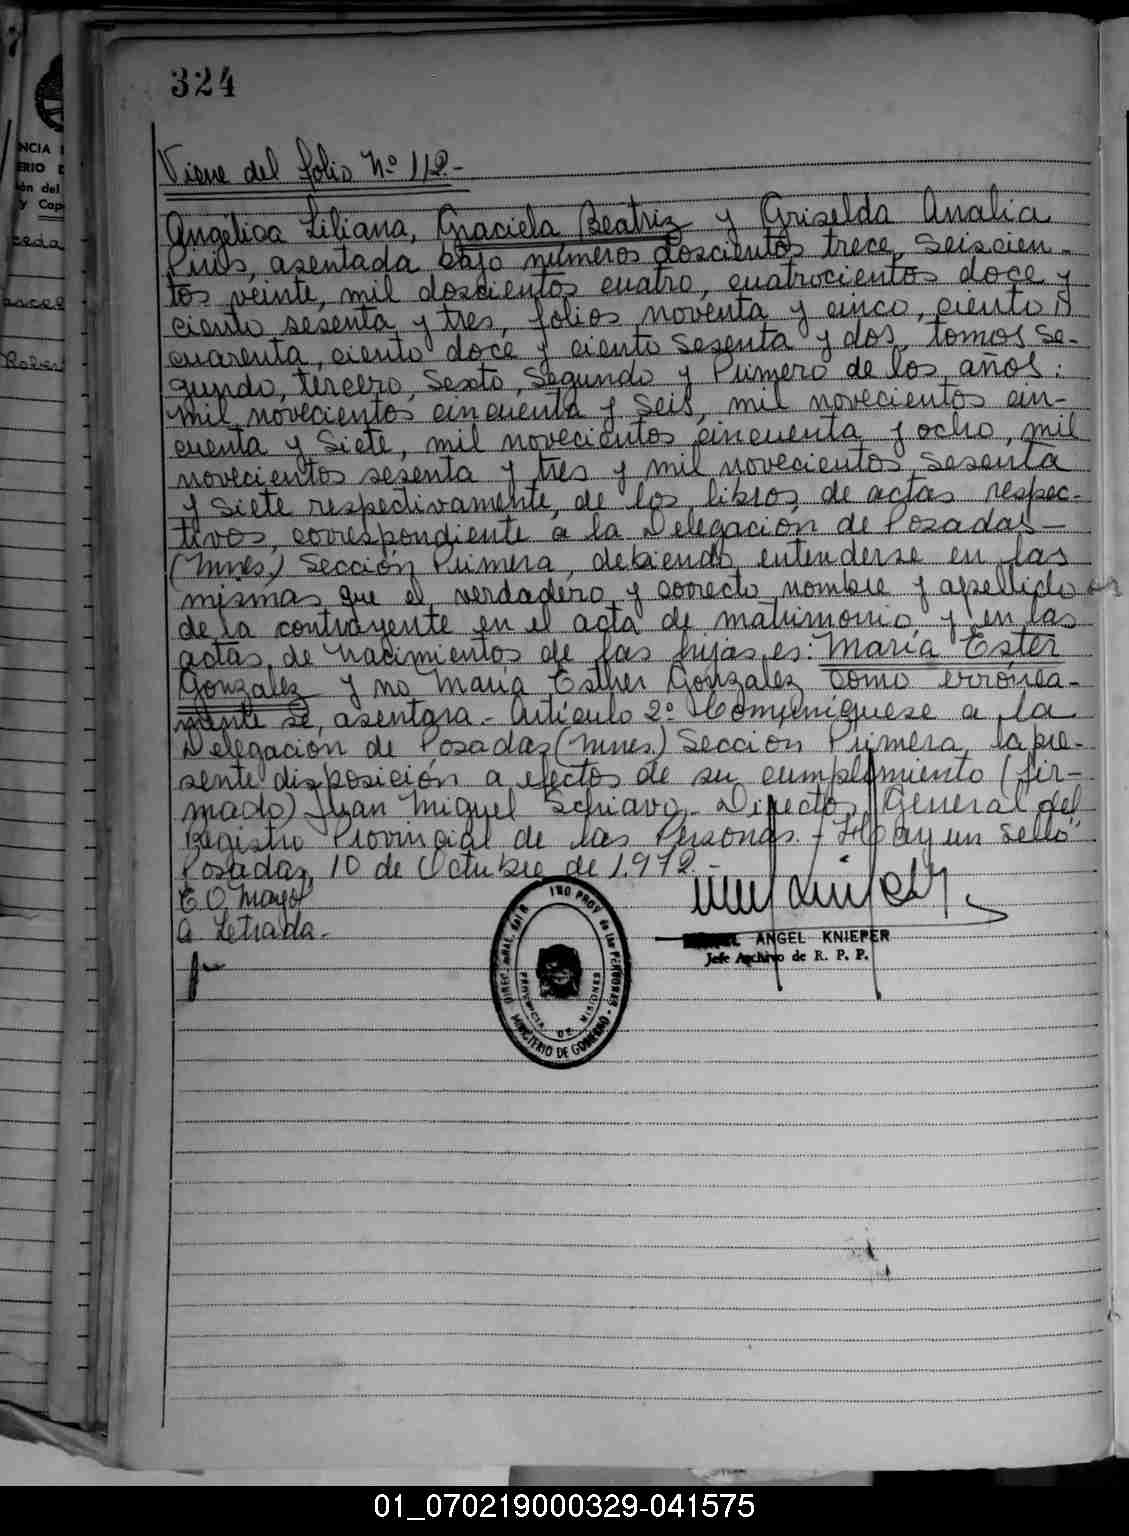 324
NCIA
ERIO D
ón del
y Cap
Viene del folio Nº 112.-
Angélica Liliana, Graciela Beatriz y Griselda Analia
asentada bajo números doscientos trece, seiscien-
tos veinte, mil doscientos cuatro, cuatrocientos doce y
ciento sesenta y tres, folios noventa y cinco, ciento
cuarenta, ciento doce y ciento sesenta y dos, tomos se-
gundo, tercero, sexto, segundo y Primero de los años:
mil novecientos cincuenta y seis, mil novecientos cin-
cuenta y siete, mil novecientos cincuenta y ocho, mil
novecientos sesenta y tres y mil novecientos sesenta
y siete respectivamente, de los libros de actas respec-
tivos, correspondiente a la Delegación de Posadas-
(Mnes) Sección Primera, debiendo entenderse en las
mismas que el verdadero y correcto nombre y apellido
de la contrayente en el acta de matrimonio y en las
actas de nacimientos de las hijas es: María Ester
Gonzalez y no María Esther Gonzalez como erronea-
mente se asentara.- Artículo 2º Comuníquese a la
Delegación de Posadas (Mnes.) Sección Primera, la pre-
sente disposición a efectos de su cumplimiento (fir-
mado) Juan Miguel Schiavo.- Director General del
Registro Provincial de las Personas.- Hay un sello"
Posadas, 10 de Octubre de 1.972.-
E.O. Mayo
A Letrada.-
ANGEL KNIEPER
Jefe Archivo de R. P. P.
PROV de las PERSONAS
MINISTERIO DE GOBIERNO
PROVINCIA DE MISIONES
01_070219000329-041575